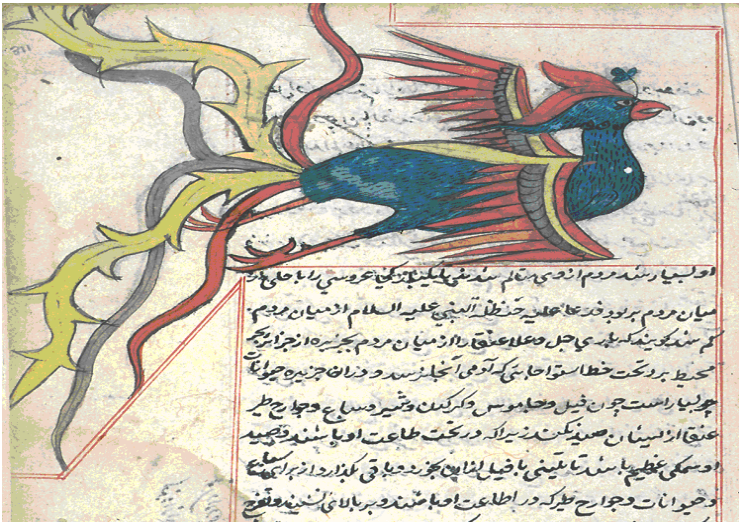 او بسیار شد مردم ازوی متالم شدند تا یکبار عروسی را با حلی از
میان مردم بربود فدعا علیه حنظلة النبی علیه السلام از میان مردم
کم شد کویند که باری جل و علا عنقا را از میان مردم بجزیره از جزایر بحر
محیط برد تحت خط استوا جایی که آدمی آنجا نرسد و دران جزیره حیوانات
بسیار است چون فیل و جاموس و کرکدن و شیر و سباع و جوارح طیر
عنقا از ایشان صید نکند زیرا که در تحت طاعت او باشند و صید
او سمکی عظیم باشد تا تنینی یا فیل ازان بخورد و باقی بکذارد از برای سباع
و حیوانات و جوارح طیر که در اطاعت او باشند و بر بالای نشیند و تفرج